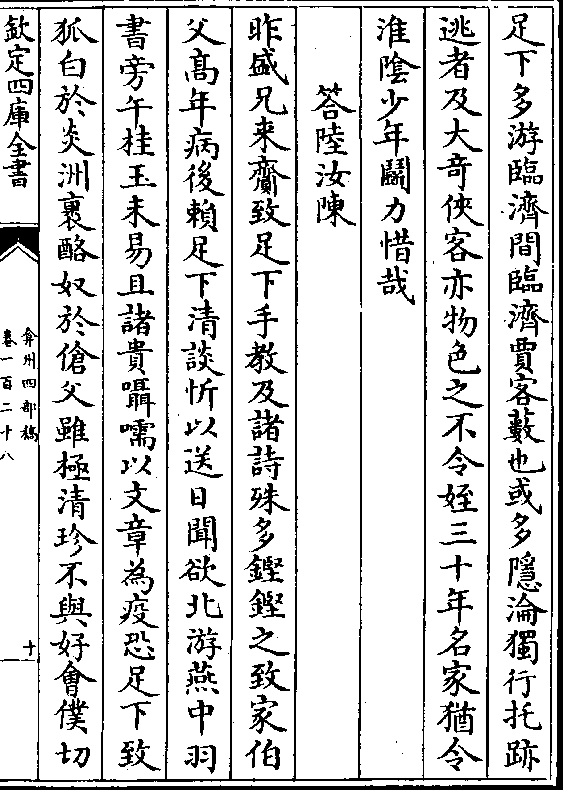 足下多游臨濟間臨濟賈客藪也或多隱淪獨行托跡
逃者及大竒俠客亦物色之不令姪三十年名家猶令
淮陰少年鬭力惜哉
答陸汝陳
昨盛兄来齎致足下手教及諸詩殊多鏗鏗之致家伯
父髙年病後賴足下清談忻以送日聞欲北游燕中羽
書旁午桂玉未易且諸貴囁嚅以文章為疫恐足下致
狐白於炎洲裹酪奴於傖父雖極清珍不與好會僕切
欽定四庫全書
弇州四部稿
卷一百二十八
十